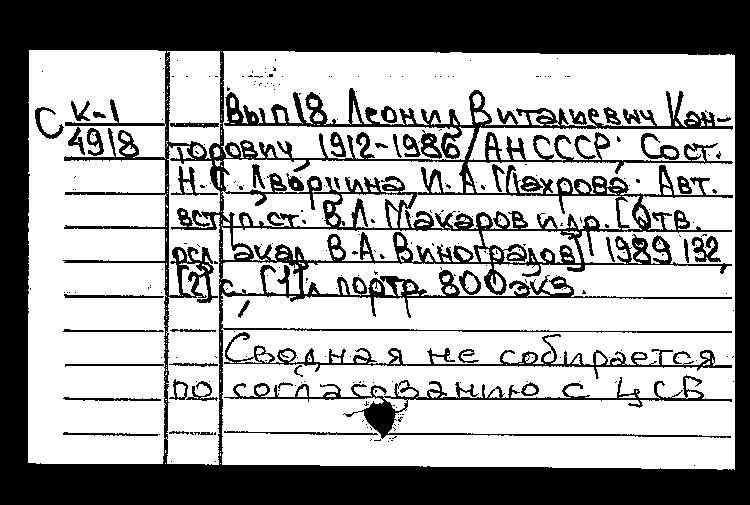 С К-1
4918
Вып 18. Леонид Витальевич Кан-
торович, 1912-1986/АН СССР; Сост.
Н.С. Дворцина, И.А. Махрова; Авт.
вступ.ст. В.Л. Макаров и др. [Отв.
акад. В.А. Виноградов] 1989 132,
[2] с. [1] л портр. 800 экз.
Сводная не собирается
по согласованию с ЦСБ